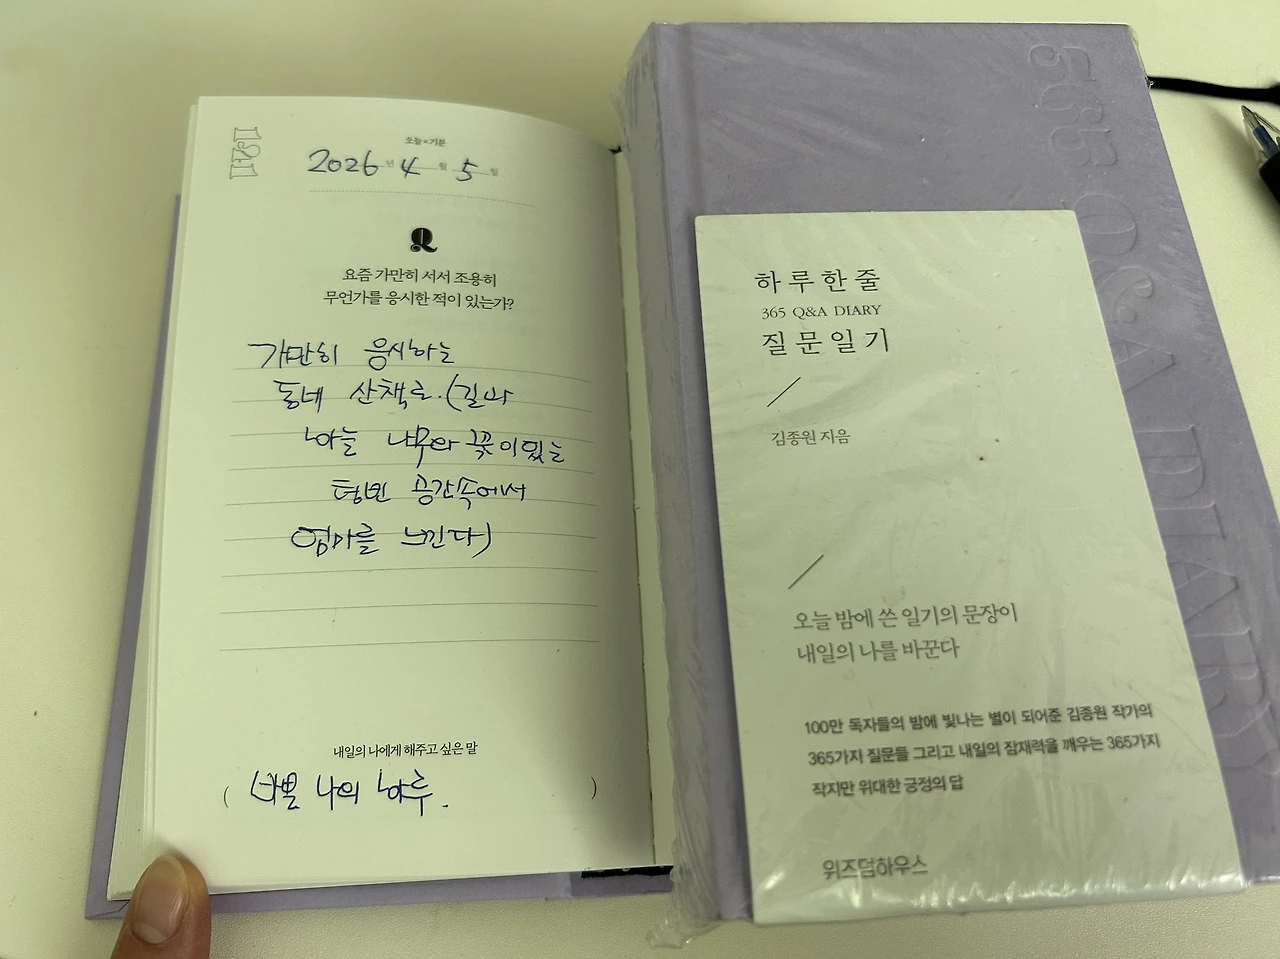 오늘×기분
2026년 4월 5일
Q
요즘 가만히 서서 조용히
무언가를 응시한 적이 있는가?
가만히 응시하는
동네 산책로.(길과
하늘 나무와 꽃이 있는
텅빈 공간속에서
엄마를 느낀다)
내일의 나에게 해주고 싶은 말
( 바쁠 나의 하루. )
365 Q&A DIARY
하루 한 줄
365 Q&A DIARY
질문 일기
김종원 지음
오늘 밤에 쓴 일기의 문장이
내일의 나를 바꾼다
100만 독자들의 밤에 빛나는 별이 되어준 김종원 작가의
365가지 질문들 그리고 내일의 잠재력을 깨우는 365가지
작지만 위대한 긍정의 답
위즈덤하우스